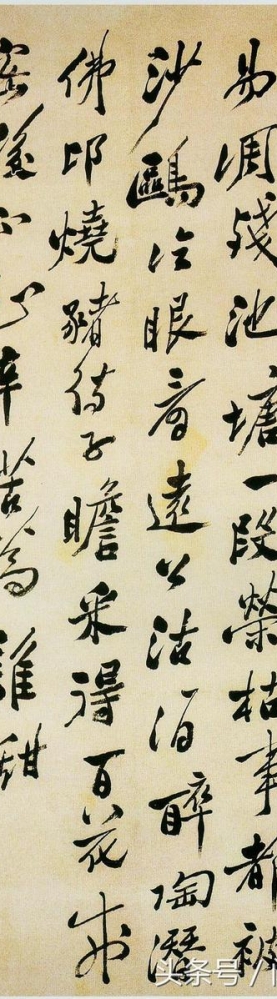 易凋殘池塘一段榮枯事都被
沙鷗冷眼看遠公沽酒醉陶潛
佛印燒豬待子瞻采得百花成
蜜後不知辛苦為誰甜
头条号/